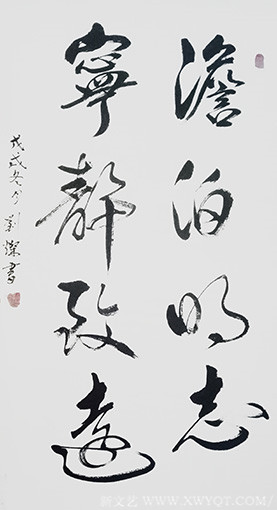 澹泊明志
寧静致遠
戊戌冬月劉燦書
新文艺 WWW.XWYQT.COM/